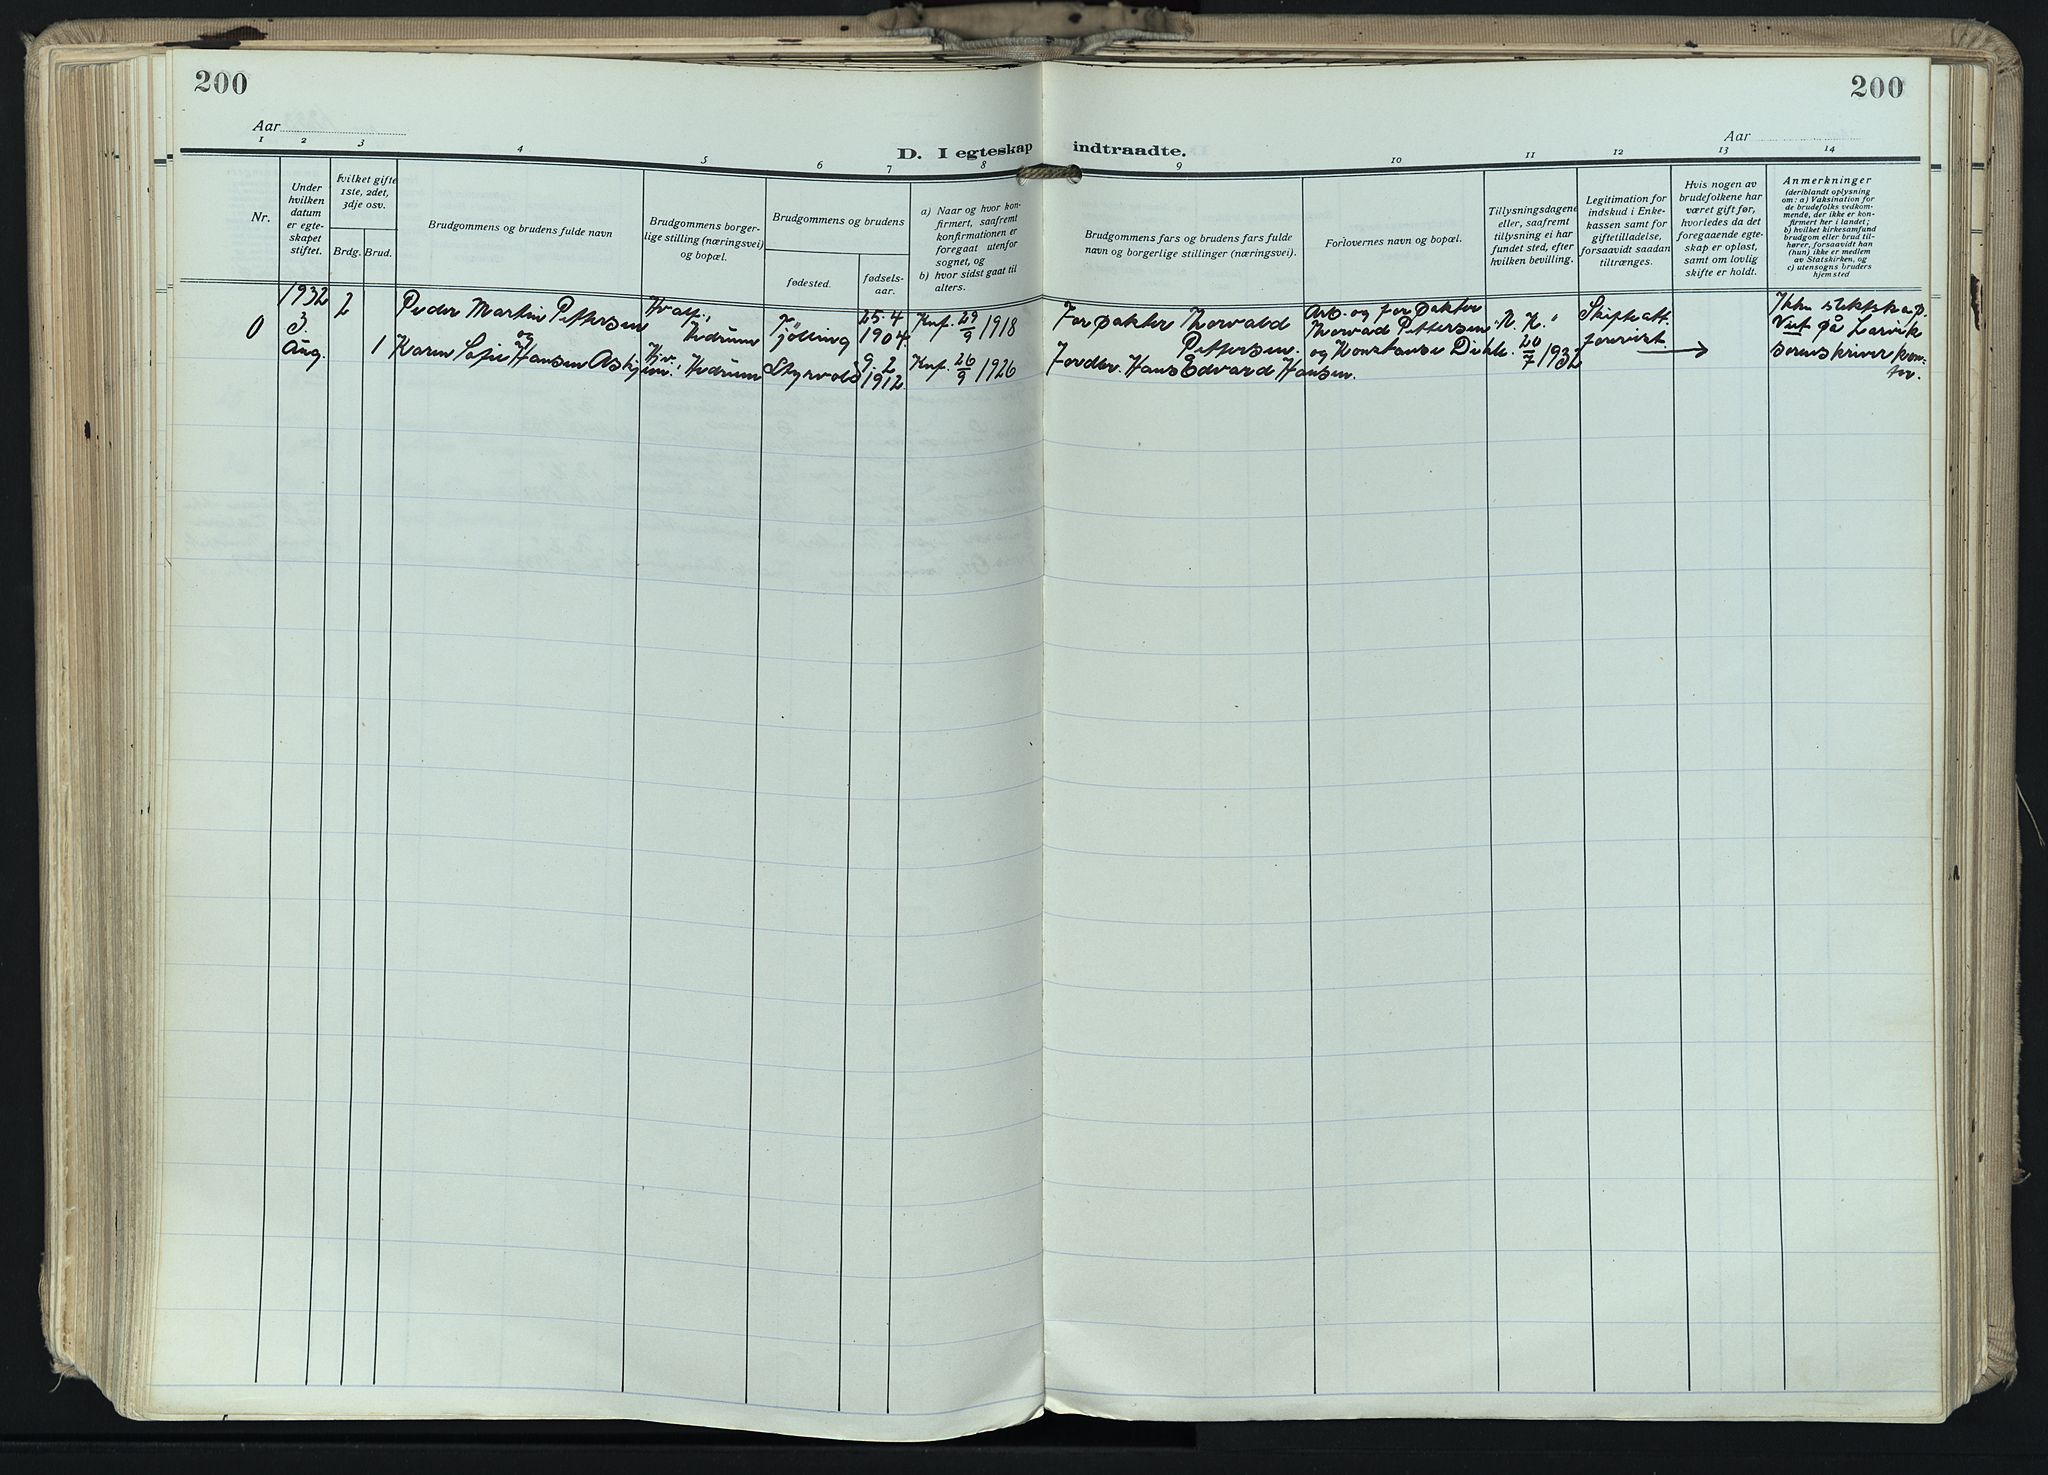 200
200
Aar
Aar
D. I egteskap indtraadte.
1 2 3 4 5 6 7 8 9 10 11 12 13 14
Nr.
Under
hvilken
datum
er egte-
skapet
stiftet.
hvilket gifte
1ste, 2det,
3dje osv.
Brdg. Brud.
Brudgommens og brudens fulde navn
Brudgommens borger-
lige stilling (næringsvei)
og bopæl.
Brudgommens og brudens
fødested.
fødsels-
aar.
a) Naar og hvor kon-
firmert, saafremt
konfirmationen er
foregaat utenfor
sognet, og
b) hvor sidst gaat til
alters.
Brudgommens fars og brudens fars fulde
navn og borgerlige stillinger (næringsvei).
Forlovernes navn og bopæl.
Tillysningsdagene
eller, saafremt
tillysning ei har
fundet sted, efter
hvilken bevilling.
Legitimation for
indskud i Enke-
kassen samt for
giftetilladelse,
forsaavidt saadan
tiltrænges.
Hvis nogen av
brudefolkene har
været gift før,
hvorledes da det
foregaaende egte-
skap er opløst,
samt om lovlig
skifte er holdt.
Anmerkninger
(deriblandt oplysning
om: a) Vaksination for
de brudefolks vedkom-
mende, der ikke er kon-
firmert her i landet;
b) hvilket kirkesamfund
brudgom eller brud til-
hører, forsaavidt han
(hun) ikke er medlem
av Statskirken, og
c) utensogns bruders
hjemsted
0
1932
3.
Aug.
2
Peder Martin Pettersen
og
1 Karen Sofie Hansen
Hedrum
Hedrum
Tjølling
25.4
1904
9.2
1912
Knf. 29/9 1918
Knf. 26/9 1926
Forpakter Thorvald
Pettersen.
Forder. Hans Edvard Hansen.
Arb. og forpakter
Thorvald Pettersen
og Konstanse
20/7 1932
Skifteatt.
forevist.
Ikke slektskap.
Viet på Larvik
sorenskriverkon-
tor.